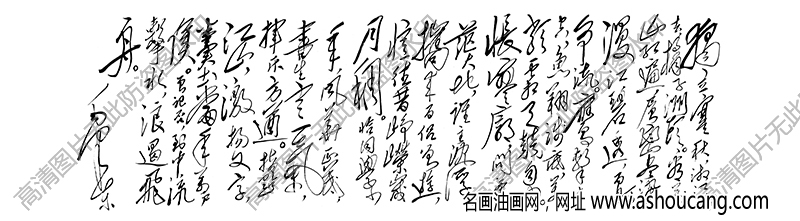 独立寒秋,湘江
北去,橘子洲头。看万
山红遍,层林尽染
漫江碧透,百舸
争流。鹰击长空,
鱼翔浅底,万类
霜天竞自由。
怅寥廓,问苍
茫大地,谁主沉浮
携来百侣曾游,
忆往昔峥嵘岁
月稠。恰同学少
年,风华正茂,
书生意气,
挥斥方遒。指点
江山,激扬文字,
粪土当年万户
侯。曾记否,到中流
击水,浪遏飞
舟。
毛泽东
名画油画网。网址 www.ashoucang.com